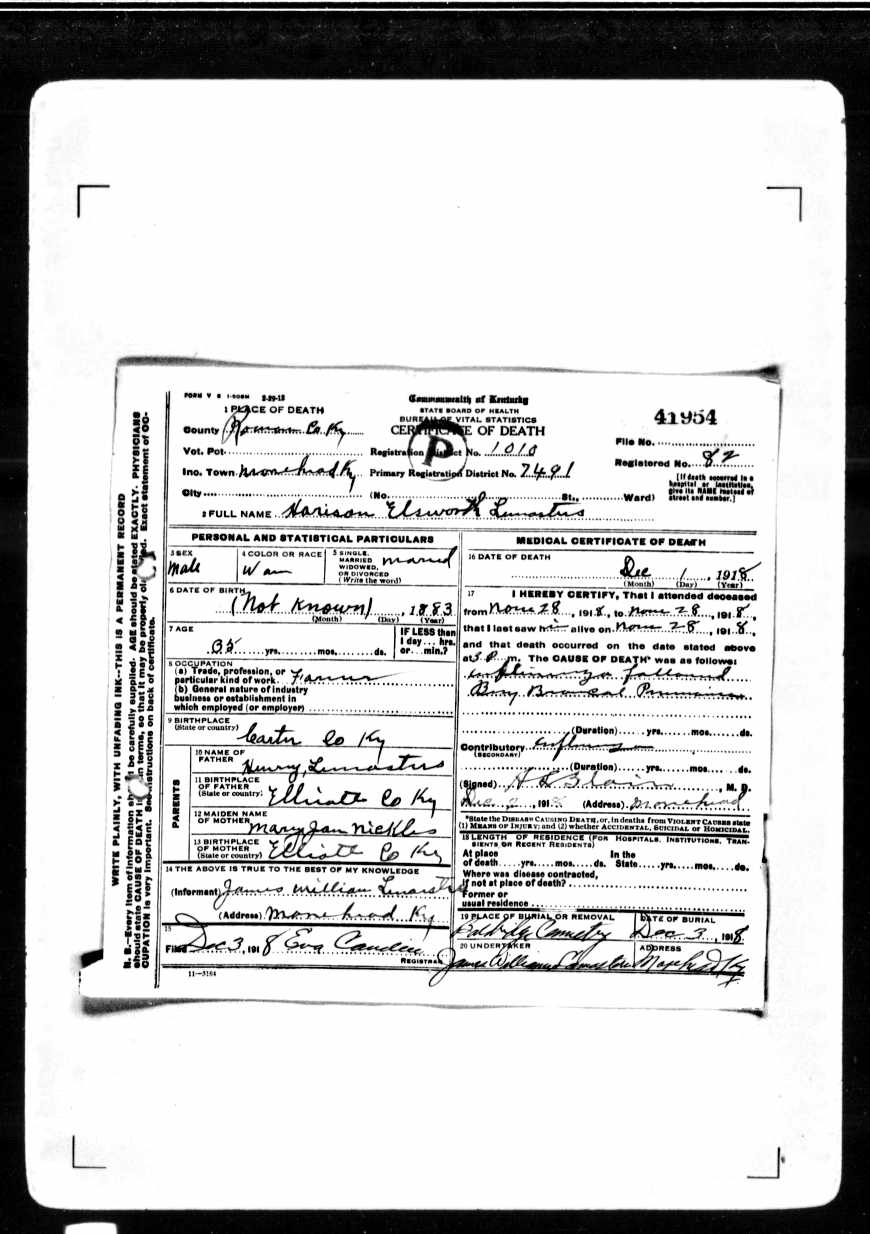 FORM V S 1-50BM 3-29-18
Commonwealth of Kentucky
STATE BOARD OF HEALTH
BUREAU OF VITAL STATISTICS
CERTIFICATE OF DEATH
P
41954
1 PLACE OF DEATH
County Rowan Co Ky
Vot. Pct.
Registration District No. 1010
File No.
Inc. Town Morehead Ky
Primary Registration District No. 7491
Registered No. 82
City (No. St., Ward)
[If death occurred in a hospital or institution, give its NAME instead of street and number.]
2 FULL NAME Harison Elsworth Lemasters
PERSONAL AND STATISTICAL PARTICULARS
3 SEX
Male
4 COLOR OR RACE
5 SINGLE, MARRIED WIDOWED, OR DIVORCED (Write the word)
Married
6 DATE OF BIRTH
(Not Known), 1883
(Month) (Day) (Year)
7 AGE
35 yrs. mos. ds.
IF LESS than 1 day... hrs. or... min.?
8 OCCUPATION
(a) Trade, profession, or particular kind of work Farmer
(b) General nature of industry business or establishment in which employed (or employer)
9 BIRTHPLACE
(State or country)
Carter Co Ky
PARENTS
10 NAME OF FATHER
Henry Lemasters
11 BIRTHPLACE OF FATHER (State or country)
Elliott Co Ky
12 MAIDEN NAME OF MOTHER
Mary Jan Nickles
13 BIRTHPLACE OF MOTHER (State or country)
Elliott Co Ky
14 THE ABOVE IS TRUE TO THE BEST OF MY KNOWLEDGE
(Informant) James William Lemasters
(Address) Morehead Ky
15
Filed Dec 3, 1918 Eva Caudill
REGISTRAR
11-3184
MEDICAL CERTIFICATE OF DEATH
16 DATE OF DEATH
Dec 1, 1918
(Month) (Day) (Year)
17 I HEREBY CERTIFY, That I attended deceased
from 28, 1918, to 28, 1918,
that I last saw him alive on 28, 1918,
and that death occurred on the date stated above
at 3 P. m. The CAUSE OF DEATH* was as follows:
(Duration) yrs. mos. ds.
Contributory
(SECONDARY)
(Duration) yrs. mos. ds.
(Signed) Blair, M. D.
Dec 2, 191 (Address) Morehead
*State the DISEASE CAUSING DEATH, or, in deaths from VIOLENT CAUSES state
(1) MEANS OF INJURY; and (2) whether ACCIDENTAL, SUICIDAL or HOMICIDAL.
18 LENGTH OF RESIDENCE (FOR HOSPITALS, INSTITUTIONS, TRANSIENTS OR RECENT RESIDENTS)
At place of death yrs. mos. ds. In the State yrs. mos. ds.
Where was disease contracted,
If not at place of death?
Former or
usual residence
19 PLACE OF BURIAL OR REMOVAL
DATE OF BURIAL
Dec 3, 1918
20 UNDERTAKER
ADDRESS
James William Lemasters Morehead Ky
WRITE PLAINLY, WITH UNFADING INK--THIS IS A PERMANENT RECORD
N. B.--Every item of information should be carefully supplied. AGE should be stated EXACTLY. PHYSICIANS
should state CAUSE OF DEATH in terms, so that it may be properly Exact statement of OC-
CUPATION is very important. See instructions on back of certificate.